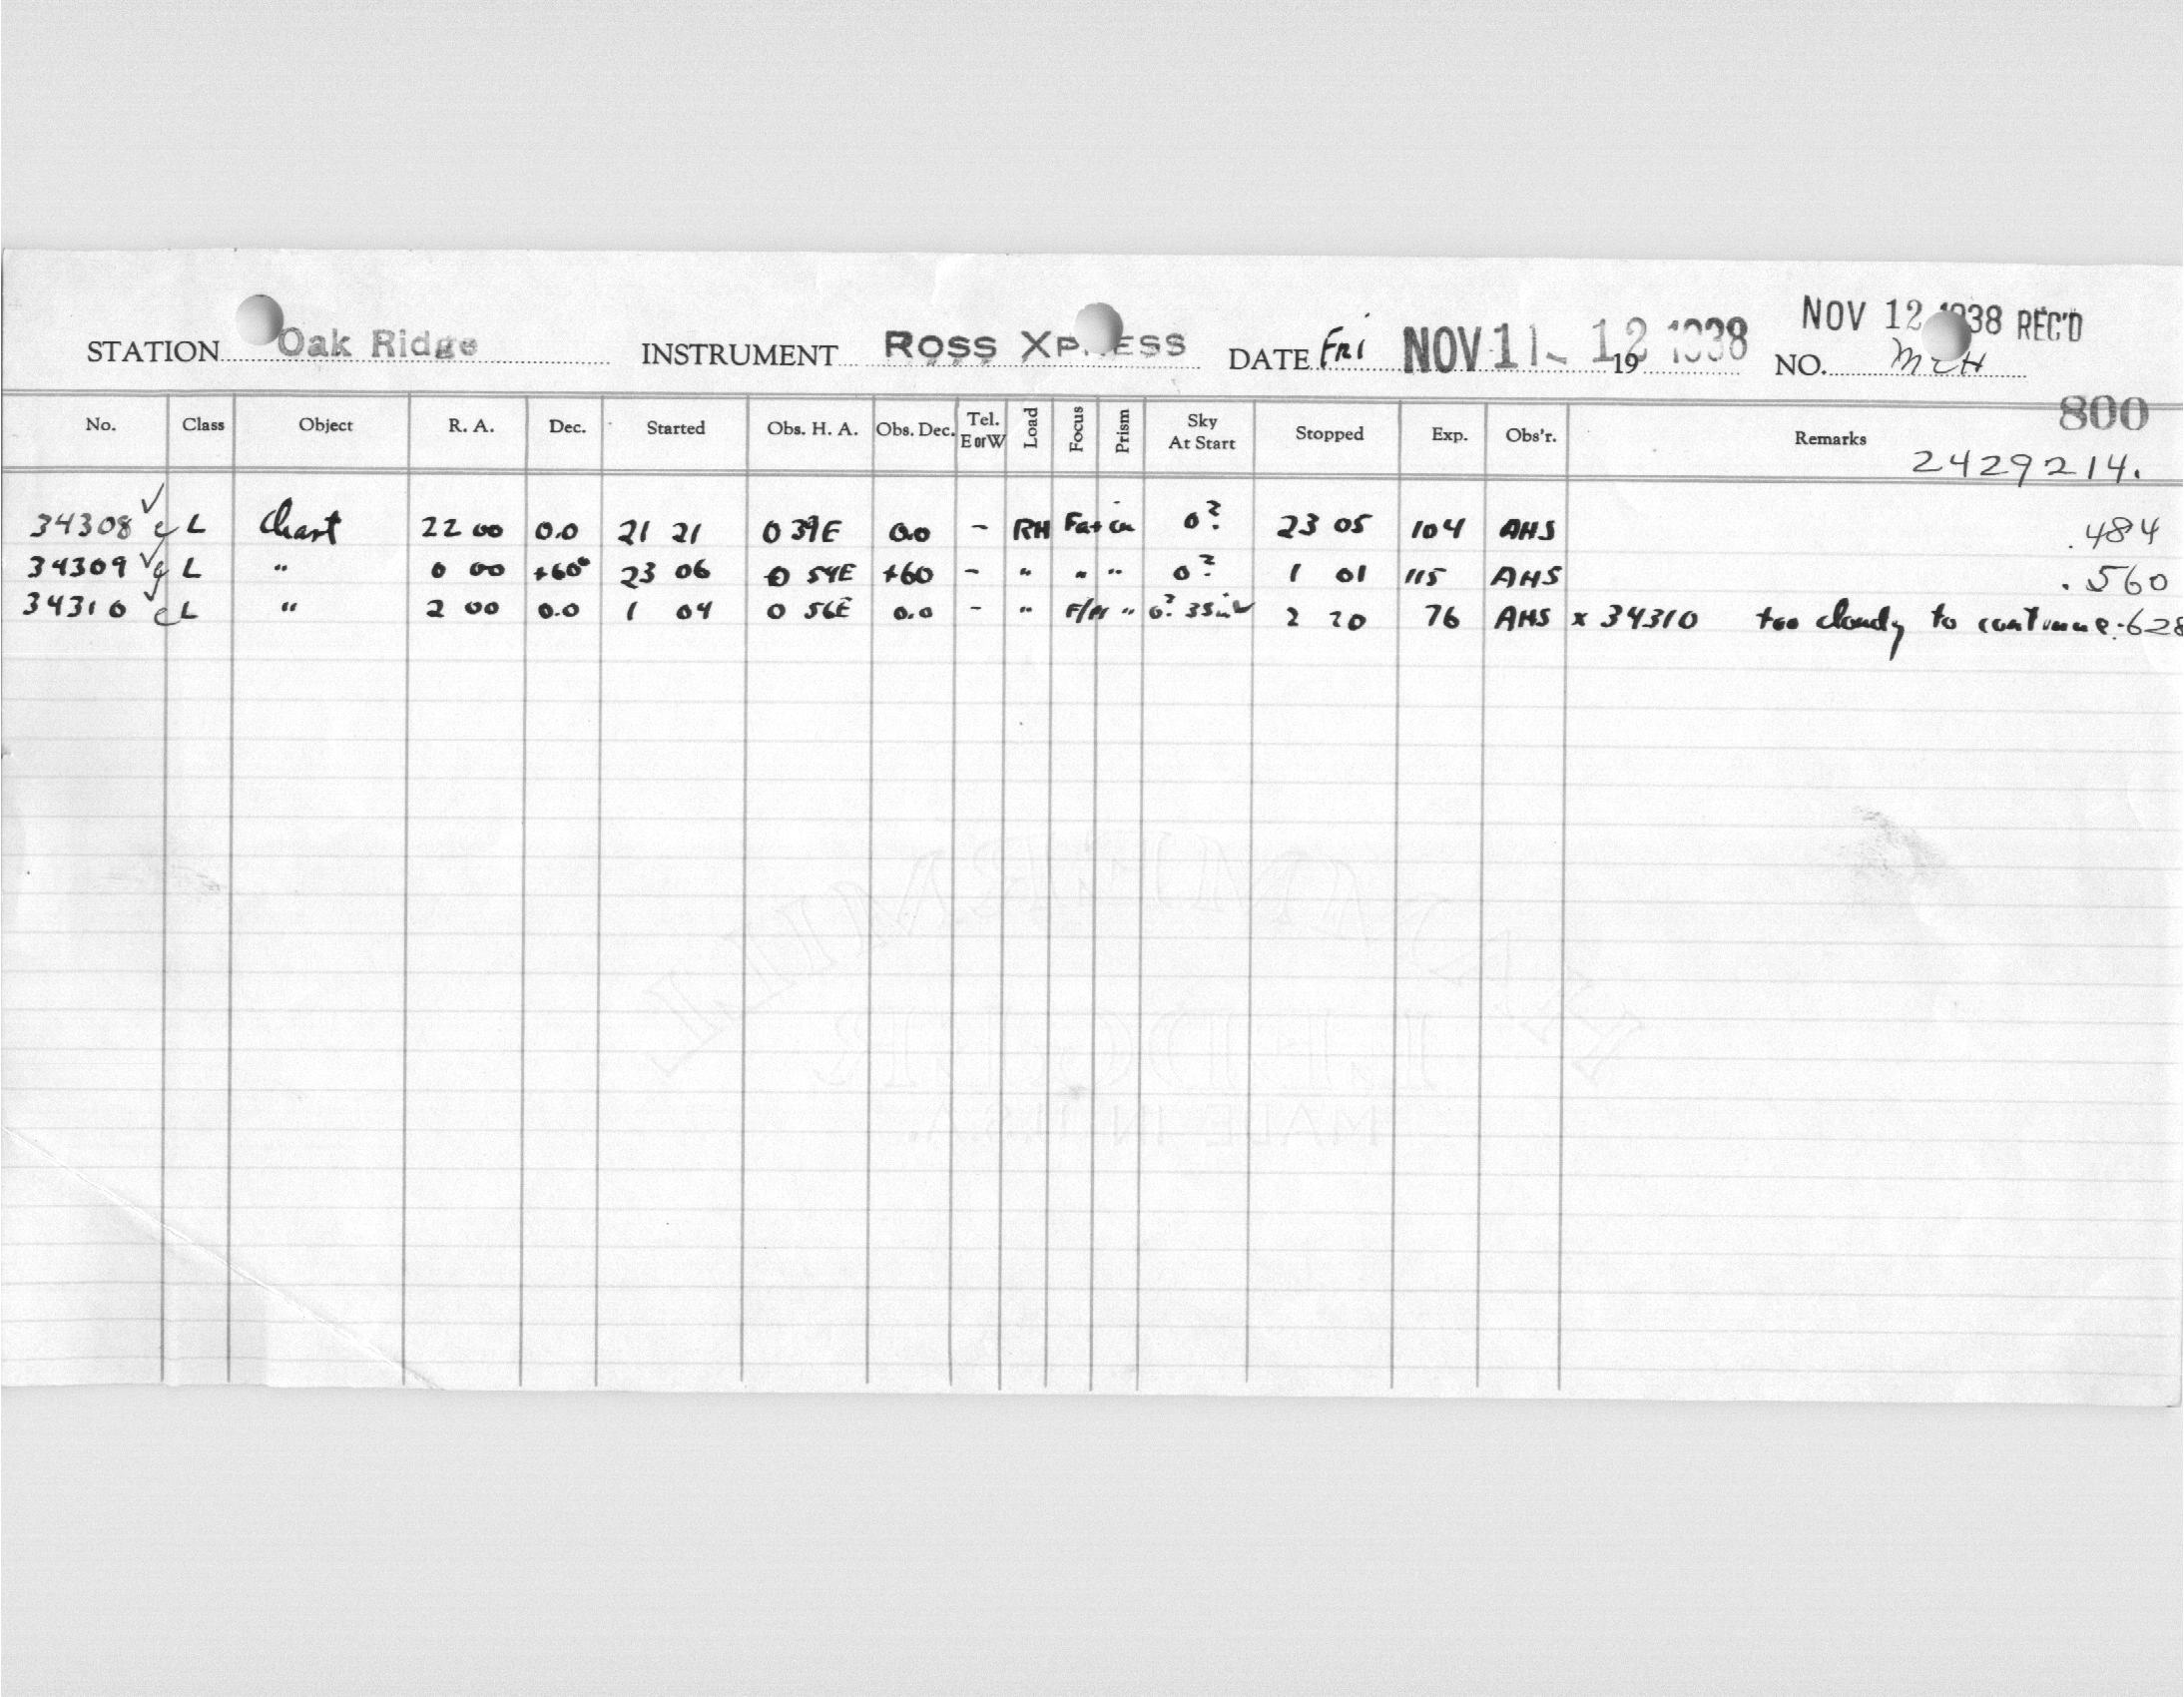 NOV 12 1938 REC'D
STATION Oak Ridge INSTRUMENT ROSS XPRESS DATE Fri NOV 11 - 12 1938 19 NO. McH
800
No. Class Object R. A. Dec. Started Obs. H. A. Obs. Dec. Tel. E or W Load Focus Prism Sky At Start Stopped Exp. Obs'r. Remarks
2429214.
34308 ✓ c L Chart 22 00 0.0 21 21 0 39E 0.0 - RH 0? 23 05 104 AHS .484
34309 ✓ c L " 0 00 +60° 23 06 0 54E +60 - " " " 0? 1 01 115 AHS .560
34310 ✓ c L " 2 00 0.0 1 04 0 56E 0.0 - " " 0? 2 20 76 AHS x 34310 too cloudy to continue .628
HAMMERMILL
LEDGER
MADE IN U.S.A.